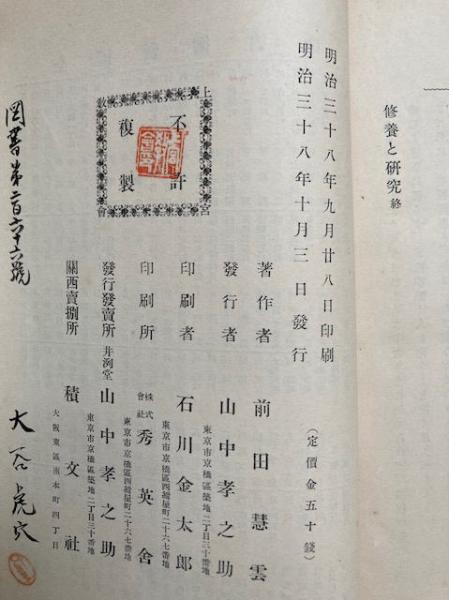 修養と研究 終
明治三十八年九月廿八日印刷
明治三十八年十月三日發行
(定價金五十錢)
上宮教會
不許
複製
著作者 前田慧雲
發行者 山中孝之助
東京市京橋區築地二丁目三十番地
印刷者 石川金太郎
東京市京橋區西紺屋町二十六七番地
印刷所 株式會社 秀英舍
東京市京橋區西紺屋町二十六七番地
發行發賣所 井洌堂 山中孝之助
東京市京橋區築地二丁目三十番地
關西賣捌所 積文社
大阪東區南本町四丁目
図書第二百六十六號
大谷虎穴